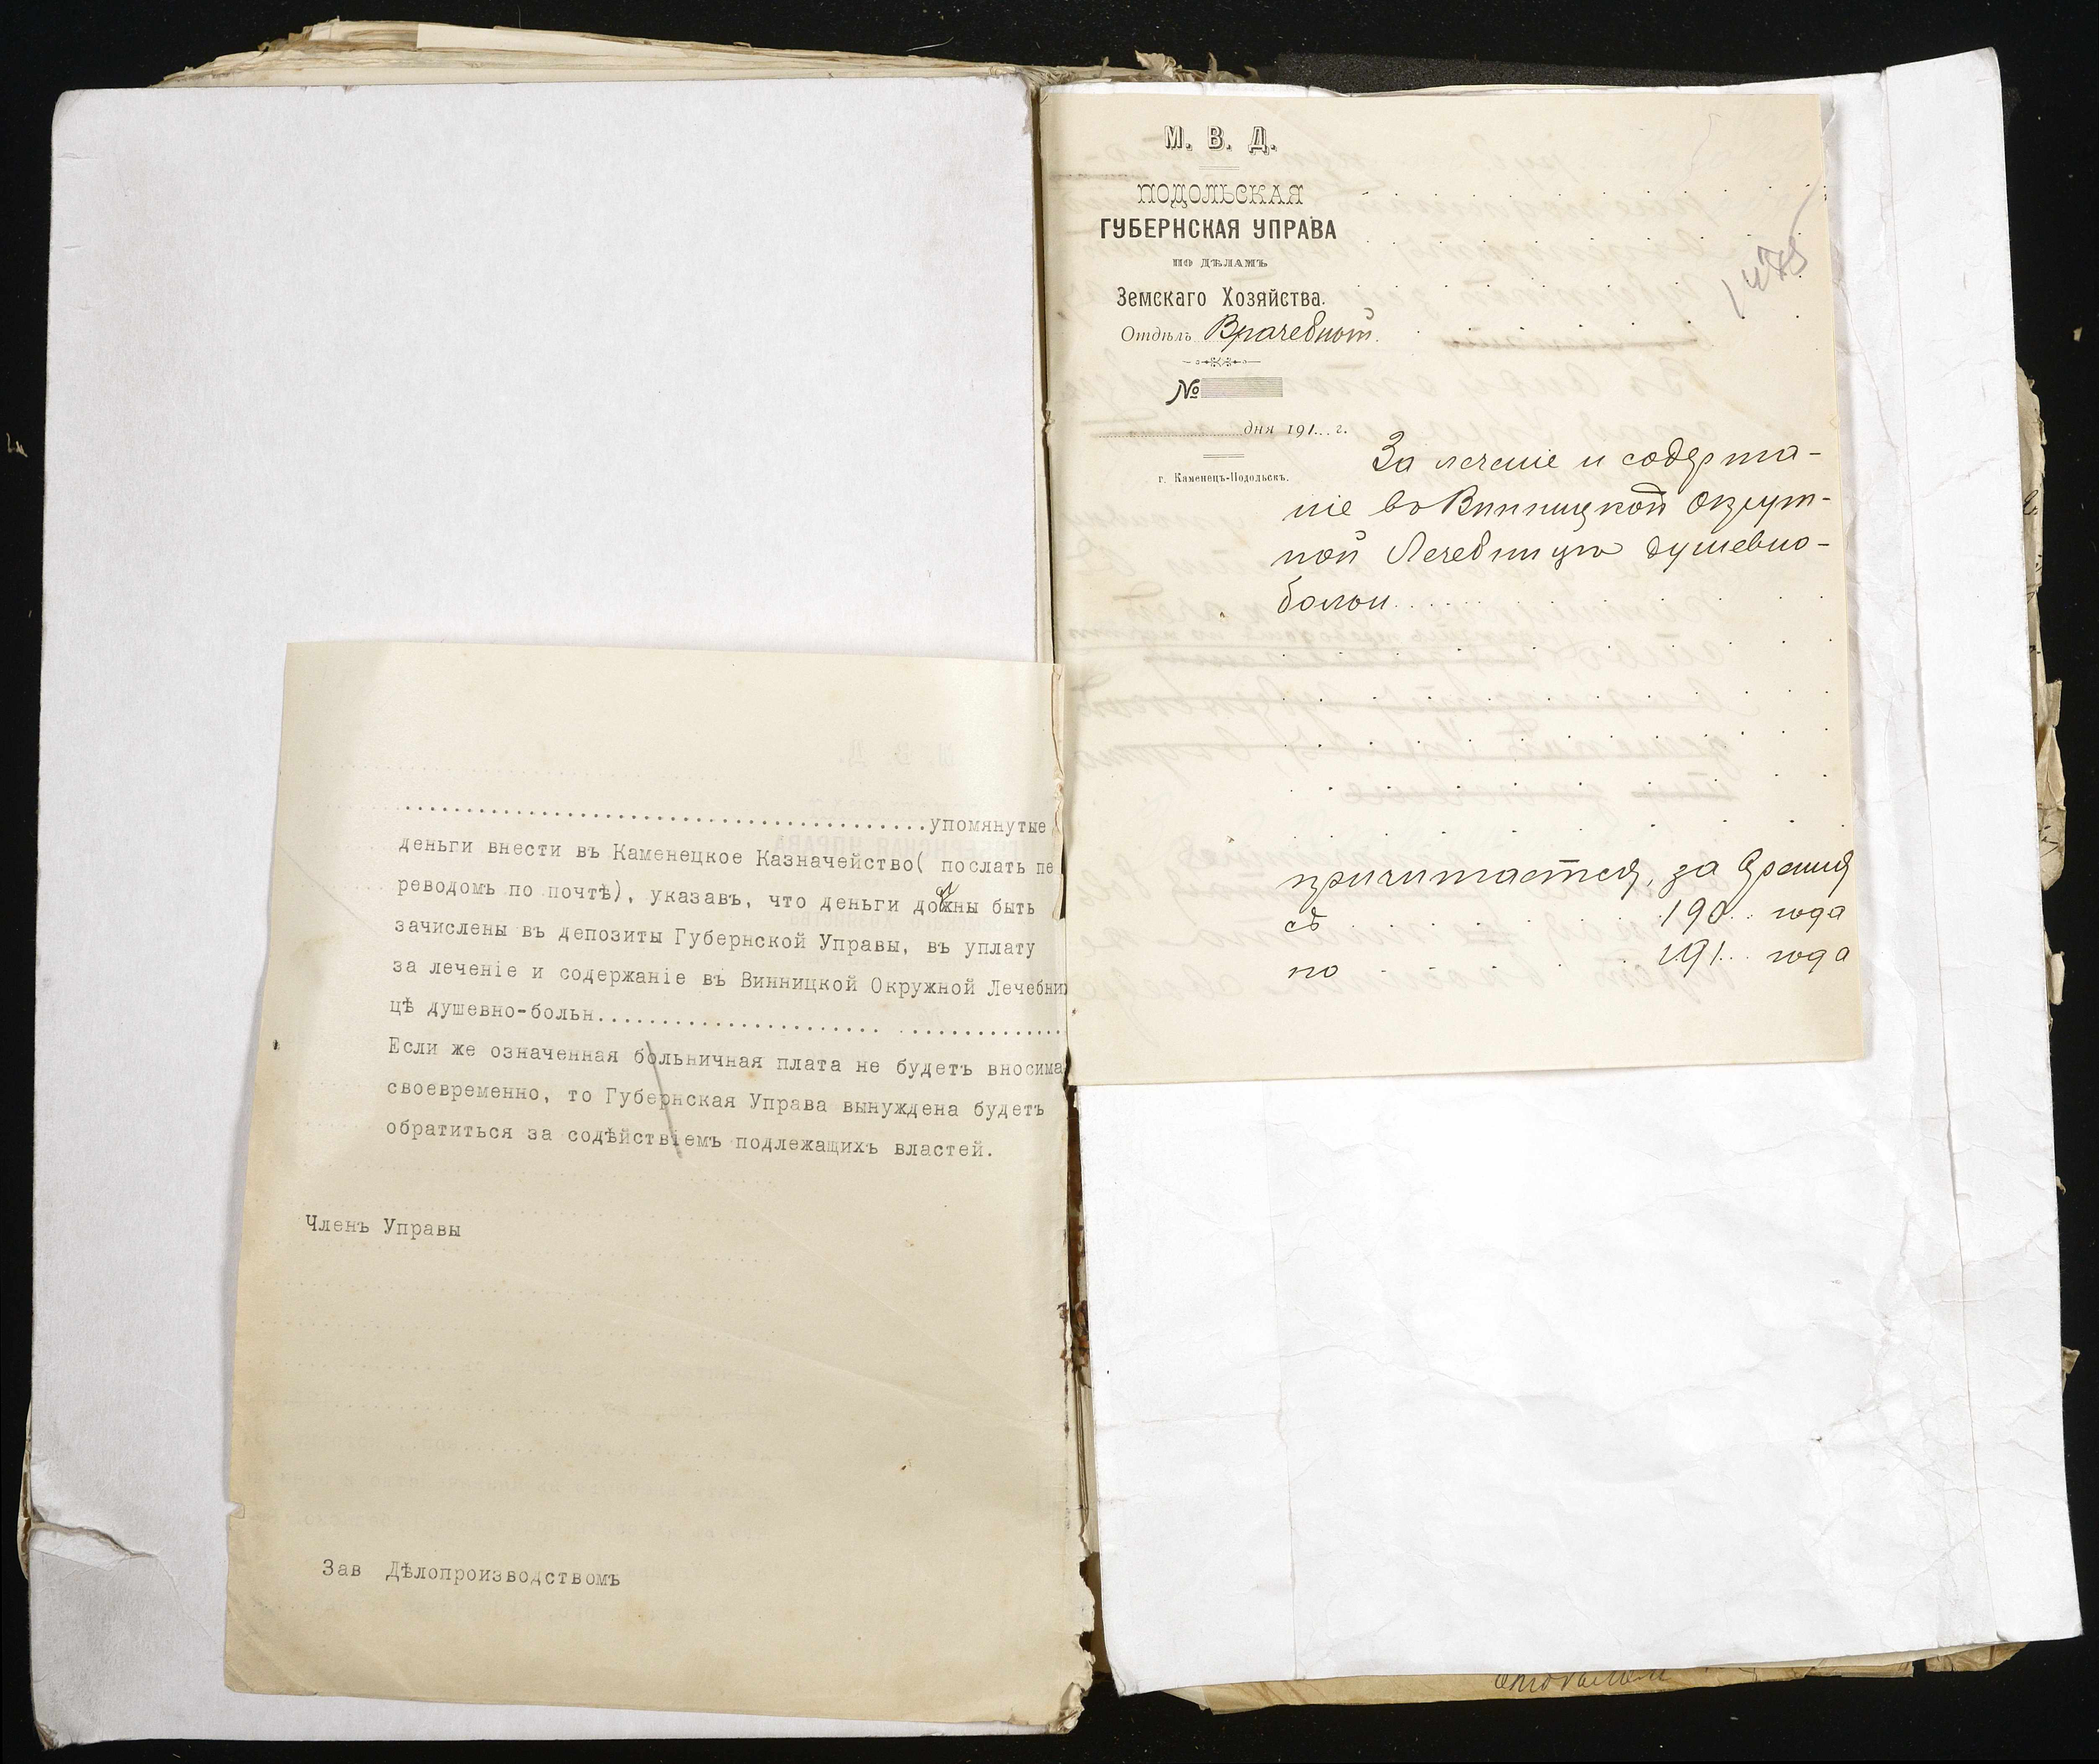 .............................................упомянутые
деньги внести въ Каменецкое Казначейство( послать пе
реводомъ по почтѣ), указавъ, что деньги должны быть
зачислены въ депозиты Губернской Управы, въ уплату
за леченіе и содержаніе въ Винницкой Окружной Лечебни
цѣ душевно-больн.......................................
Если же означенная больничная плата не будетъ вносима
своевременно, то Губернская Управа вынуждена будетъ
обратиться за содѣйствіемъ подлежащихъ властей.
Членъ Управы
Зав Дѣлопроизводствомъ
М. В. Д.
ПОДОЛЬСКАЯ
ГУБЕРНСКАЯ УПРАВА
ПО ДѢЛАМЪ
Земскаго Хозяйства.
Отдѣлъ Врачебный.
№
дня 191... г.
г. Каменецъ-Подольскъ.
1475
За леченіе и содержа-
ніе въ Винницкой Окруж-
ной Лечебницѣ душевно-
больн..........
причитается, за время
съ ........ 190... года
по ........ 191... года